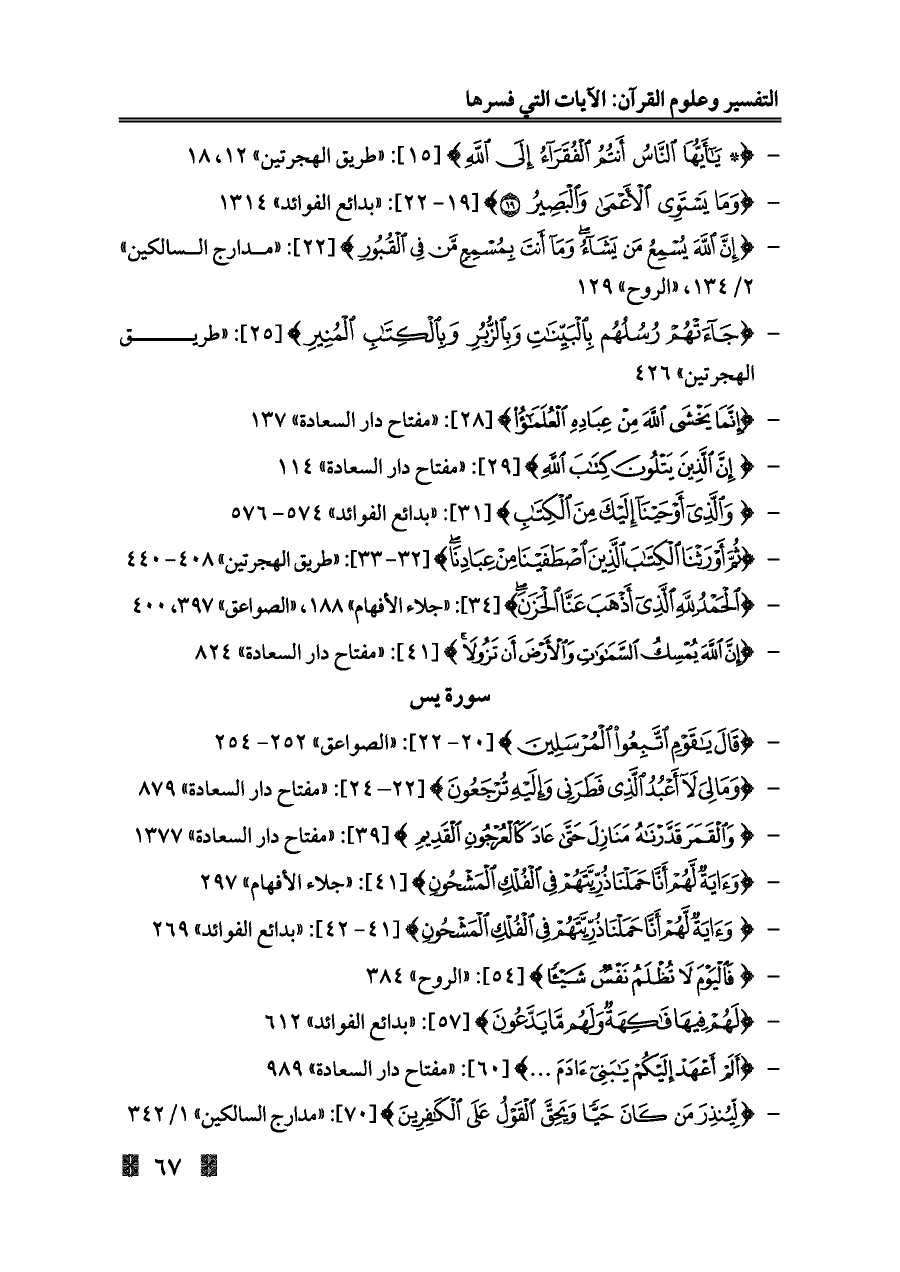 التفسير وعلوم القرآن: الآيات التي فسرها
- ﴿۞ يَٰٓأَيُّهَا ٱلنَّاسُ أَنتُمُ ٱلْفُقَرَآءُ إِلَى ٱللَّهِ﴾ [١٥]: «طريق الهجرتين» ١٢، ١٨
- ﴿وَمَا يَسْتَوِى ٱلْأَعْمَىٰ وَٱلْبَصِيرُ ۝١٩﴾ [١٩- ٢٢]: «بدائع الفوائد» ١٣١٤
- ﴿إِنَّ ٱللَّهَ يُسْمِعُ مَن يَشَآءُۖ وَمَآ أَنتَ بِمُسْمِعٍ مَّن فِى ٱلْقُبُورِ﴾ [٢٢]: «مدارج السالكين»
٢/ ١٣٤، «الروح» ١٢٩
- ﴿جَآءَتْهُمْ رُسُلُهُم بِٱلْبَيِّنَٰتِ وَبِٱلزُّبُرِ وَبِٱلْكِتَٰبِ ٱلْمُنِيرِ﴾ [٢٥]: «طريق
الهجرتين» ٤٢٦
- ﴿إِنَّمَا يَخْشَى ٱللَّهَ مِنْ عِبَادِهِ ٱلْعُلَمَٰٓؤُا۟﴾ [٢٨]: «مفتاح دار السعادة» ١٣٧
- ﴿إِنَّ ٱلَّذِينَ يَتْلُونَ كِتَٰبَ ٱللَّهِ﴾ [٢٩]: «مفتاح دار السعادة» ١١٤
- ﴿وَٱلَّذِىٓ أَوْحَيْنَآ إِلَيْكَ مِنَ ٱلْكِتَٰبِ﴾ [٣١]: «بدائع الفوائد» ٥٧٤- ٥٧٦
- ﴿ثُمَّ أَوْرَثْنَا ٱلْكِتَٰبَ ٱلَّذِينَ ٱصْطَفَيْنَا مِنْ عِبَادِنَاۖ﴾ [٣٢- ٣٣]: «طريق الهجرتين» ٤٠٨- ٤٤٠
- ﴿ٱلْحَمْدُ لِلَّهِ ٱلَّذِىٓ أَذْهَبَ عَنَّا ٱلْحَزَنَۖ﴾ [٣٤]: «جلاء الأفهام» ١٨٨، «الصواعق» ٣٩٧، ٤٠٠
- ﴿إِنَّ ٱللَّهَ يُمْسِكُ ٱلسَّمَٰوَٰتِ وَٱلْأَرْضَ أَن تَزُولَاۚ﴾ [٤١]: «مفتاح دار السعادة» ٨٢٤
سورة يس
- ﴿قَالَ يَٰقَوْمِ ٱتَّبِعُوا۟ ٱلْمُرْسَلِينَ﴾ [٢٠- ٢٢]: «الصواعق» ٢٥٢- ٢٥٤
- ﴿وَمَا لِىَ لَآ أَعْبُدُ ٱلَّذِى فَطَرَنِى وَإِلَيْهِ تُرْجَعُونَ﴾ [٢٢- ٢٤]: «مفتاح دار السعادة» ٨٧٩
- ﴿وَٱلْقَمَرَ قَدَّرْنَٰهُ مَنَازِلَ حَتَّىٰ عَادَ كَٱلْعُرْجُونِ ٱلْقَدِيمِ﴾ [٣٩]: «مفتاح دار السعادة» ١٣٧٧
- ﴿وَءَايَةٌ لَّهُمْ أَنَّا حَمَلْنَا ذُرِّيَّتَهُمْ فِى ٱلْفُلْكِ ٱلْمَشْحُونِ﴾ [٤١]: «جلاء الأفهام» ٢٩٧
- ﴿وَءَايَةٌ لَّهُمْ أَنَّا حَمَلْنَا ذُرِّيَّتَهُمْ فِى ٱلْفُلْكِ ٱلْمَشْحُونِ﴾ [٤١- ٤٢]: «بدائع الفوائد» ٢٦٩
- ﴿فَٱلْيَوْمَ لَا تُظْلَمُ نَفْسٌ شَيْـًٔا﴾ [٥٤]: «الروح» ٣٨٤
- ﴿لَهُمْ فِيهَا فَٰكِهَةٌ وَلَهُم مَّا يَدَّعُونَ﴾ [٥٧]: «بدائع الفوائد» ٦١٢
- ﴿أَلَمْ أَعْهَدْ إِلَيْكُمْ يَٰبَنِىٓ ءَادَمَ ...﴾ [٦٠]: «مفتاح دار السعادة» ٩٨٩
- ﴿لِّيُنذِرَ مَن كَانَ حَيًّا وَيَحِقَّ ٱلْقَوْلُ عَلَى ٱلْكَٰفِرِينَ﴾ [٧٠]: «مدارج السالكين» ١/ ٣٤٢
٦٧